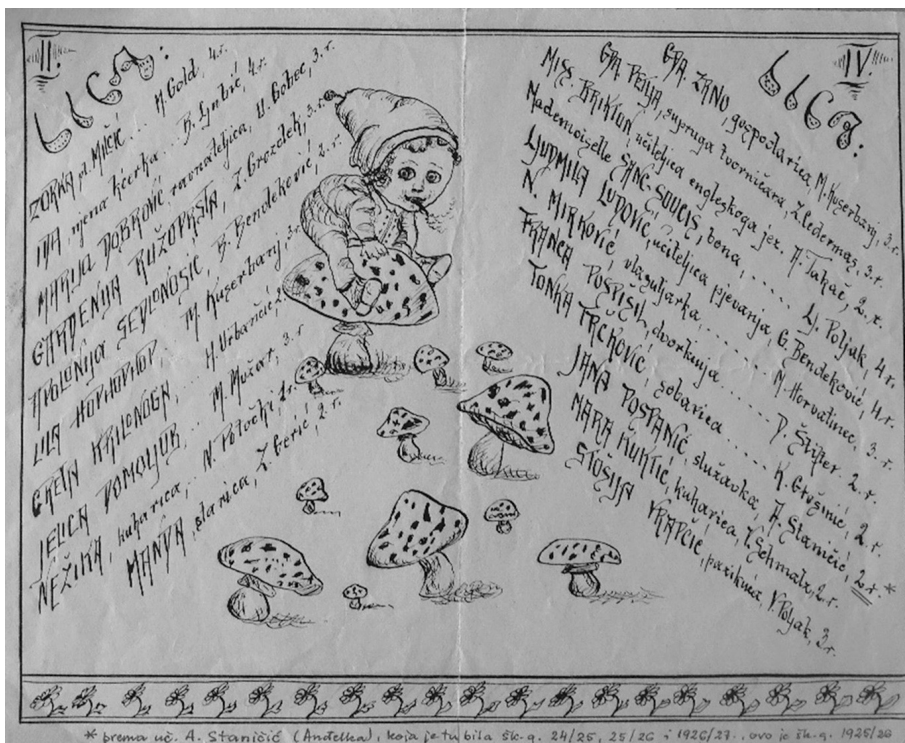 II.
LICA:
ZORKA pl. MILČIĆ ... M. Gold, 4.r.
IDA, njena kćerka ... B. Ljubić, 4.r.
MARIJA DOBROVIĆ, ravnateljica, U. Gobec, 3.r.
GARDENIJA RUŽOVRSTA, Z. Grozdek, 3.r.
APOLONIJA SEVLONOSIĆ, B. Bendeković, 2.r.
LILA HOPHOPHOP, ... M. Kuserbanj, 3.r.
GRETA KRILONOGA, ... H. Urbančić, 2.r.
JELICA DOMOLJUB, ... M. Mužar, 3.r
NEŽIKA, kuharica, ... N. Potočki, 2.r.
MANDA, starica, Z. Gerić, 2.r.
IV.
LICA:
GĐA. ZRNO, gospodarica, M. Kuserbanj, 3.r.
GĐA PERIJA, supruga tvorničara, Z. Ledermaš, 3.r.
MISS BRIKTON, učiteljica engleskoga jez. A. Tukač, 2.r.
Mademoiselle SANC-SOUCIS, bona, ..... Lj. Poljak, 4.r.
LJUDMILA LUDOVIĆ, učiteljica pjevanja, G. Bendeković, 4.r.
N. MIRKOVIĆ, vlasuljarka ....... M. Horvatinec, 3.r.
FRANCA POSPIŠIL, dvorkinja ...... D. Štifter 2.r.
TONKA TRČKOVIĆ, sobarica ..... K. Grušinić, 2.r.
JANA POSTANIĆ, služavka, A. Staničić, 2.r. *
MARA KUKTIĆ, kuharica, V. Schmalz, 2.r.
STOŠIJA VRAPČIĆ, parikuća, V. Poljak, 3.r.
* prema uč. A. Staničić (Anđelka), koja je tu bila šk.g. 24/25, 25/26 i 1926/27., ovo je šk.g. 1925/26